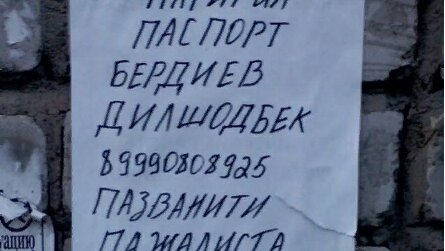 ПАСПОРТ
БЕРДИЕВ
ДИЛШОДБЕК
89990808925
ПАЗВАНИТИ
ПАЖАЛИСТА